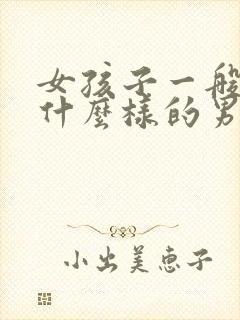 女孩子一般
什麼樣的男
小出美恵子